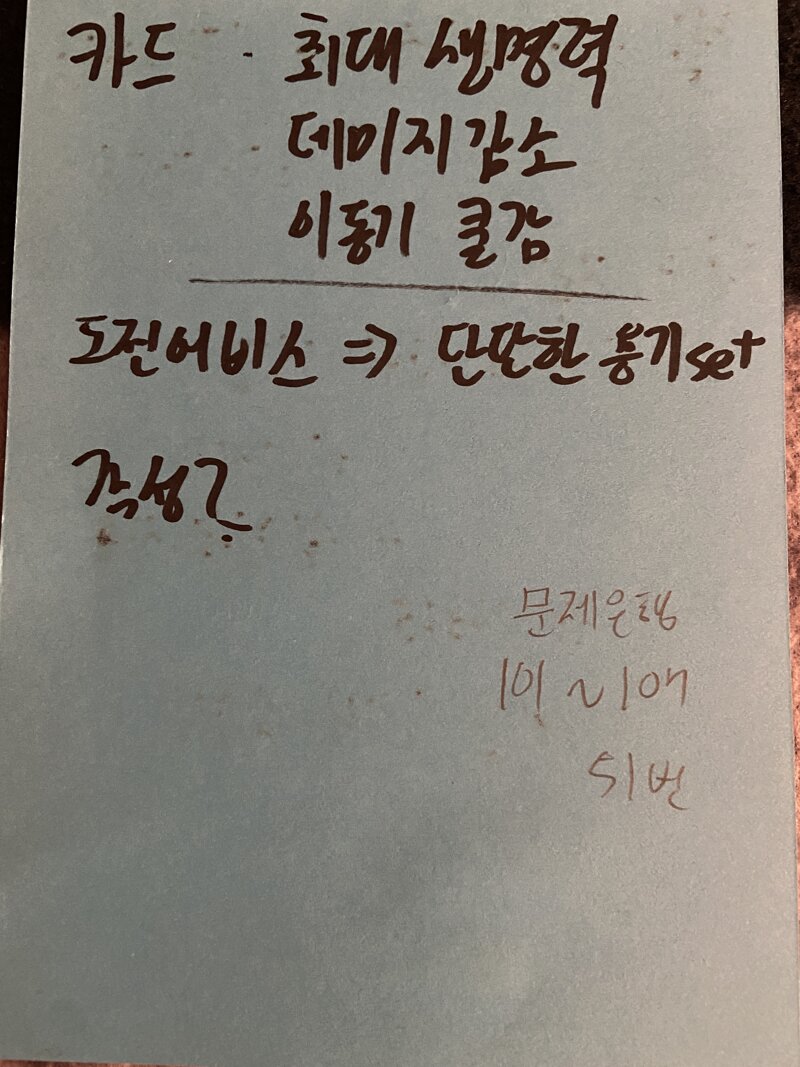 카드 · 최대 생명력
데미지감소
이동기 쿨감
도전어비스 => 단단한 용기set
각성?
문제은행
101 ~ 107
51번